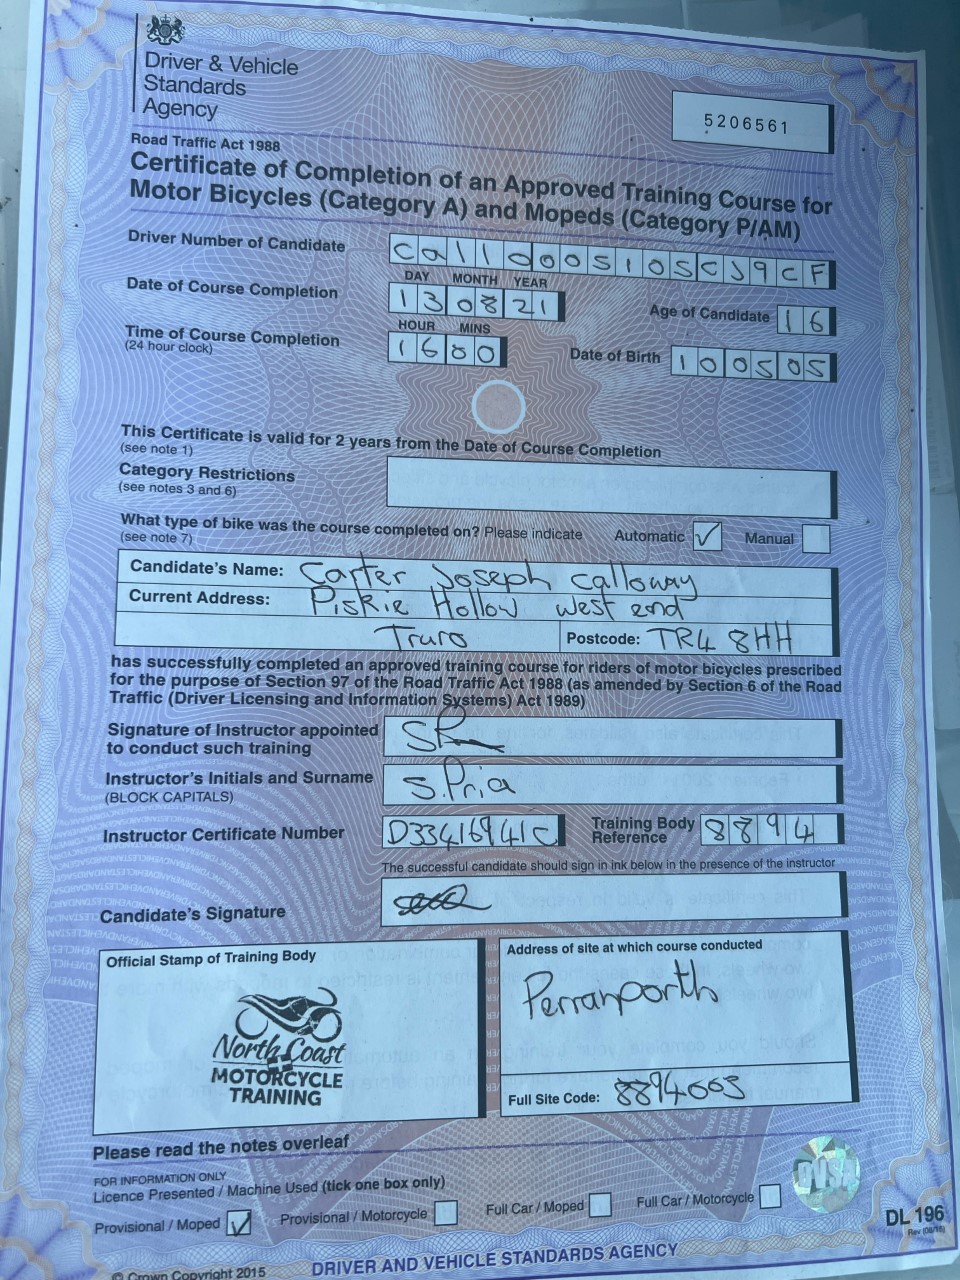 Driver & Vehicle
Standards
Agency
5206561
Road Traffic Act 1988
Certificate of Completion of an Approved Training Course for
Motor Bicycles (Category A) and Mopeds (Category P/AM)
Driver Number of Candidate Call0005105CJ9CF
DAY MONTH YEAR
Date of Course Completion 130821
Age of Candidate 16
HOUR MINS
Time of Course Completion 1600
(24 hour clock)
Date of Birth 100505
This Certificate is valid for 2 years from the Date of Course Completion
(see note 1)
Category Restrictions
(see notes 3 and 6)
What type of bike was the course completed on? Please indicate Automatic ✓ Manual
(see note 7)
Candidate's Name: Carter Joseph Calloway
Current Address: Piskie Hollow West end
Truro Postcode: TR4 8HH
has successfully completed an approved training course for riders of motor bicycles prescribed
for the purpose of Section 97 of the Road Traffic Act 1988 (as amended by Section 6 of the Road
Traffic (Driver Licensing and Information Systems) Act 1989)
Signature of Instructor appointed
to conduct such training
Instructor's Initials and Surname S.Pria
(BLOCK CAPITALS)
Instructor Certificate Number D33416941C
Training Body
Reference 8894
The successful candidate should sign in ink below in the presence of the instructor
Candidate's Signature
Official Stamp of Training Body
North Coast
MOTORCYCLE
TRAINING
Address of site at which course conducted
Perranporth
Full Site Code: 8894003
Please read the notes overleaf
FOR INFORMATION ONLY
Licence Presented / Machine Used (tick one box only)
Provisional / Moped ✓ Provisional / Motorcycle Full Car / Moped Full Car / Motorcycle
DVSA
DL 196
Rev (08/15)
© Crown Copyright 2015
DRIVER AND VEHICLE STANDARDS AGENCY